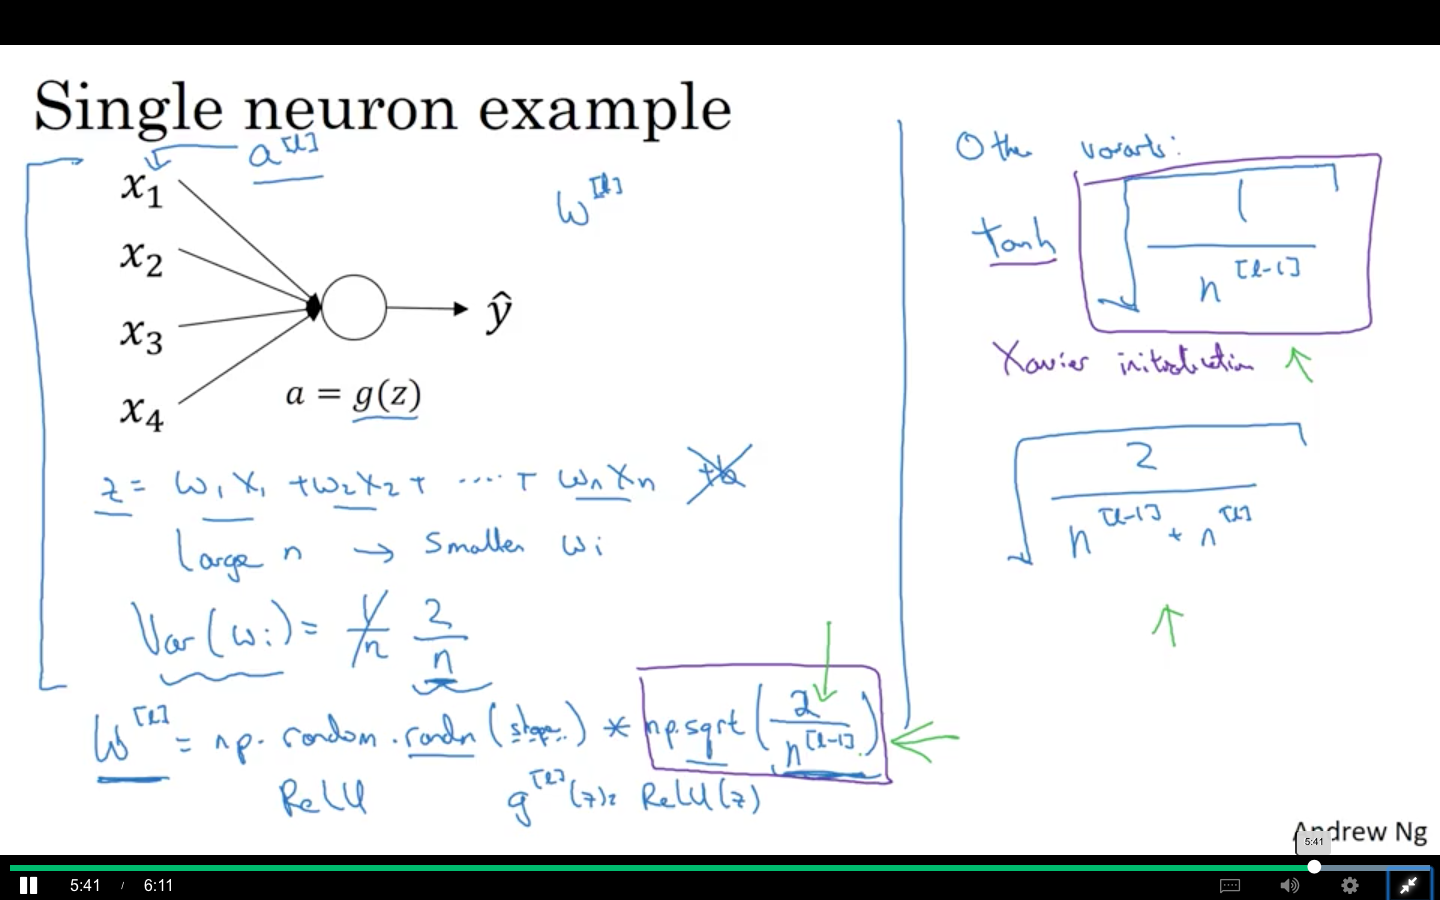 Single neuron example
a^[l]
x₁
x₂
x₃
x₄
ŷ
a = g(z)
w^[l]
z = w₁x₁ + w₂x₂ + ···· + wₙxₙ +b
Large n → Smaller wᵢ
Var(wᵢ) = 1/n 2/n
W^[l] = np.random.randn(shape) * np.sqrt(2/n^[l-1])
ReLU g^[l](z) = ReLU(z)
Other variants:
tanh √(1/n^[l-1])
Xavier initialization
√(2/(n^[l-1] + n^[l]))
Andrew Ng
5:41
5:41 / 6:11